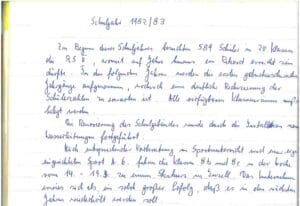 Schuljahr 1982/83
Zu Beginn dieses Schuljahres besuchten 589 Schüler in 20 Klassen
die RS II, womit auf Jahre hinaus ein Rekord erreicht sein
dürfte. In den folgenden Jahren werden die ersten geburtenschwachen
Jahrgänge aufgenommen, wodurch eine deutliche Reduzierung der
Schülerzahlen zu erwarten ist. Alle verfügbaren Klassenräume
belegt werden.
Die Renovierung des Schulgebäudes wurde durch die Installation
Wasserleitungen fortgeführt.
Nach entsprechender Vorbereitung im Sportunterricht und einer
eingerichteten Sport A. G. fahren die Klassen 8b und 8c in der Woche
vom 14. - 19. 2. zu einem Skikurs in Inzell. Das Unternehmen
erwies sich als ein solch großer Erfolg, daß es in den nächsten
Jahren wiederholt werden soll.